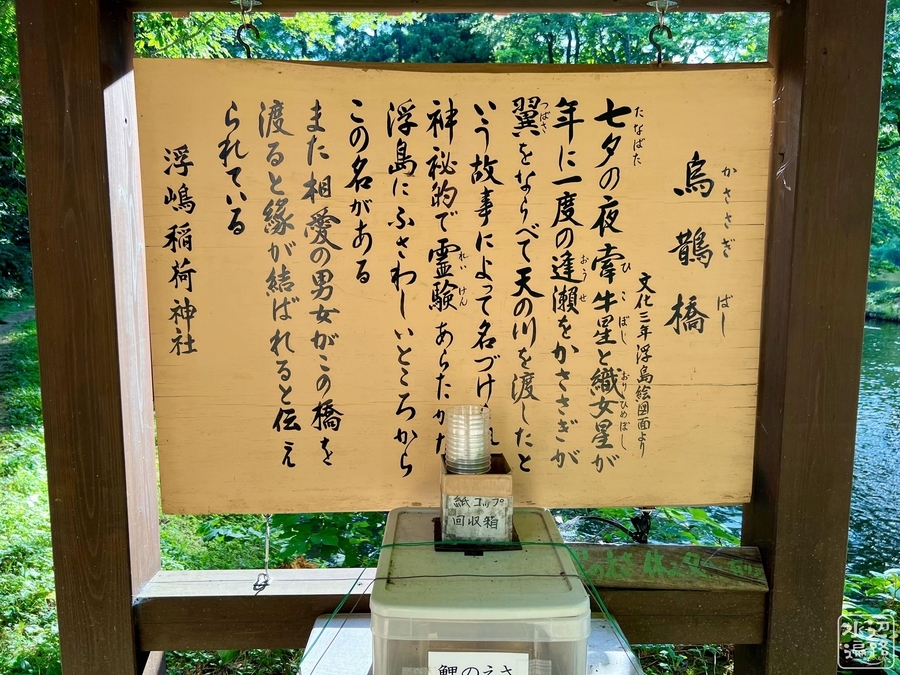 烏鵲橋
かささぎ ばし
文化三年浮島絵図面より
七夕の夜牽牛星と織女星が
たなばた ひこぼし おりひめぼし
年に一度の逢瀬をかささぎが
おうせ
翼をならべて天の川を渡したと
つばさ
いう故事によって名づけ
神秘的で霊験あらたか
れいけん
浮島にふさわしいところから
この名がある
また相愛の男女がこの橋を
渡ると縁が結ばれると伝え
られている
浮嶋稲荷神社
紙コップ
回収箱
鯉のえさ